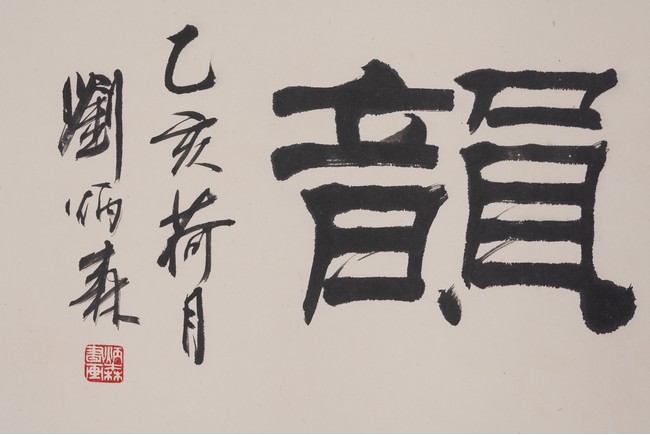 韻
乙亥荷月
劉炳森
炳森書画